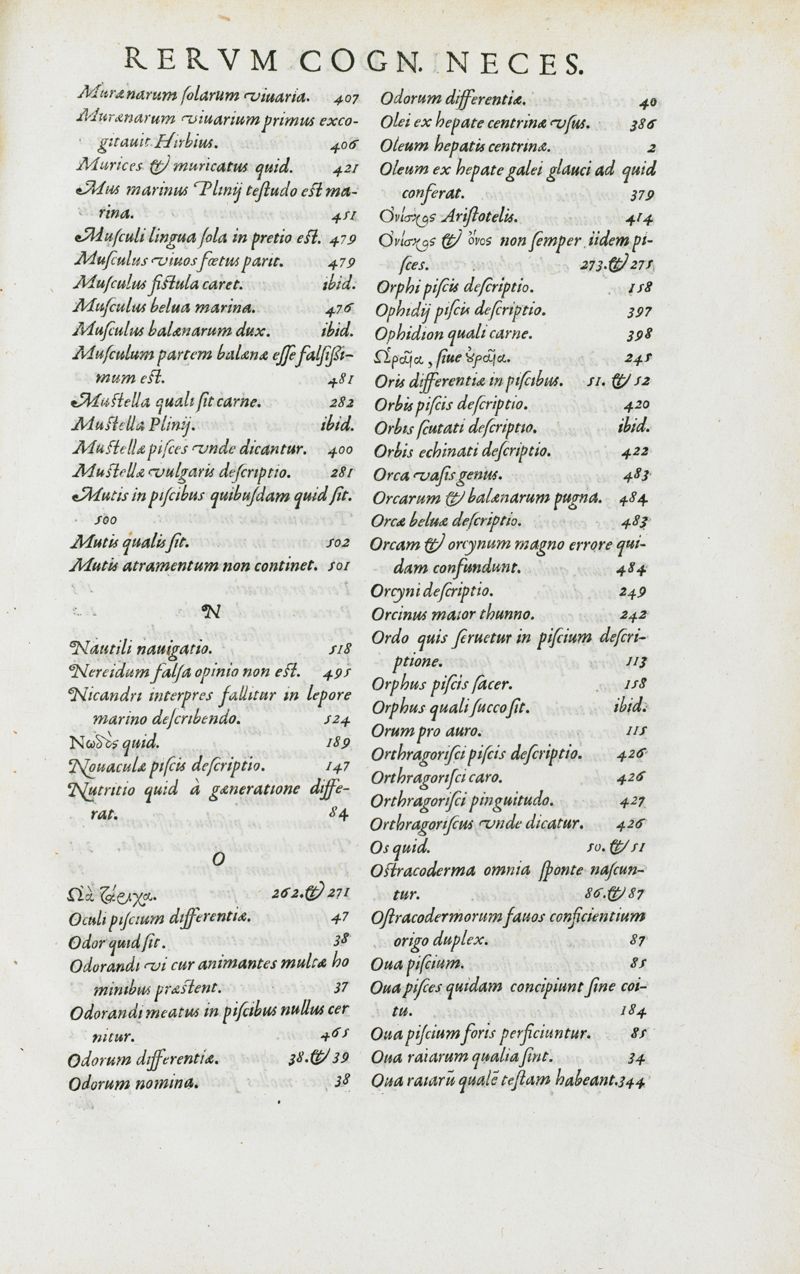 RERVM COGN. NECES.
Murænarum ſolarum viuaria. 407
Murænarum viuarium primus exco-
gitauit Hirbius. 406
Murices & muricatus quid. 421
Mus marinus Plinij teſtudo eſt ma-
rina. 451
Muſculi lingua ſola in pretio eſt. 479
Muſculus viuos fœtus parit. 479
Muſculus fiſtula caret. ibid.
Muſculus belua marina. 476
Muſculus balænarum dux. ibid.
Muſculum partem balænæ eſſe falſiſſi-
mum eſt. 481
Muſtella quali ſit carne. 282
Muſtella Plinij. ibid.
Muſtellæ piſces vnde dicantur. 400
Muſtellæ vulgaris deſcriptio. 281
Mutis in piſcibus quibuſdam quid ſit.
500
Mutis qualis ſit. 502
Mutis atramentum non continet. 501
N
Nautili nauigatio. 518
Nereidum falſa opinio non eſt. 495
Nicandri interpres fallitur in lepore
marino deſcribendo. 524
Νωδὸς quid. 189
Nouaculæ piſcis deſcriptio. 147
Nutritio quid à generatione diffe-
rat. 84
O
Ωὰ τάριχα. 262.& 271
Oculi piſcium differentiæ. 47
Odor quid ſit. 38
Odorandi vi cur animantes multæ ho
minibus præſtent. 37
Odorandi meatus in piſcibus nullus cer
nitur. 465
Odorum differentiæ. 38.& 39
Odorum nomina. 38
Odorum differentiæ. 40
Olei ex hepate centrinæ vſus. 386
Oleum hepatis centrinæ. 2
Oleum ex hepate galei glauci ad quid
conferat. 379
Ονίσκος Ariſtotelis. 414
Ονίσκος & ὄνος non ſemper iidem pi-
ſces. 273.& 275
Orphi piſcis deſcriptio. 158
Ophidij piſcis deſcriptio. 397
Ophidion quali carne. 398
Ωραῖα, ſiue ὐραῖα. 245
Oris differentiæ in piſcibus. 51. & 52
Orbis piſcis deſcriptio. 420
Orbis ſcutati deſcriptio. ibid.
Orbis echinati deſcriptio. 422
Orca vaſis genus. 483
Orcarum & balænarum pugna. 484
Orcæ beluæ deſcriptio. 483
Orcam & orcynum magno errore qui-
dam confundunt. 484
Orcyni deſcriptio. 249
Orcinus maior thunno. 242
Ordo quis ſeruetur in piſcium deſcri-
ptione. 113
Orphus piſcis ſacer. 158
Orphus quali ſucco ſit. ibid.
Orum pro auro. 115
Orthragoriſci piſcis deſcriptio. 426
Orthragoriſci caro. 426
Orthragoriſci pinguitudo. 427
Orthragoriſcus vnde dicatur. 426
Os quid. 50. & 51
Oſtracoderma omnia ſponte naſcun-
tur. 86.& 87
Oſtracodermorum fauos conficientium
origo duplex. 87
Oua piſcium. 85
Oua piſces quidam concipiunt ſine coi-
tu. 184
Oua piſcium foris perficiuntur. 85
Oua raiarum qualia ſint. 34
Oua raiarũ qualē teſtam habeant. 344